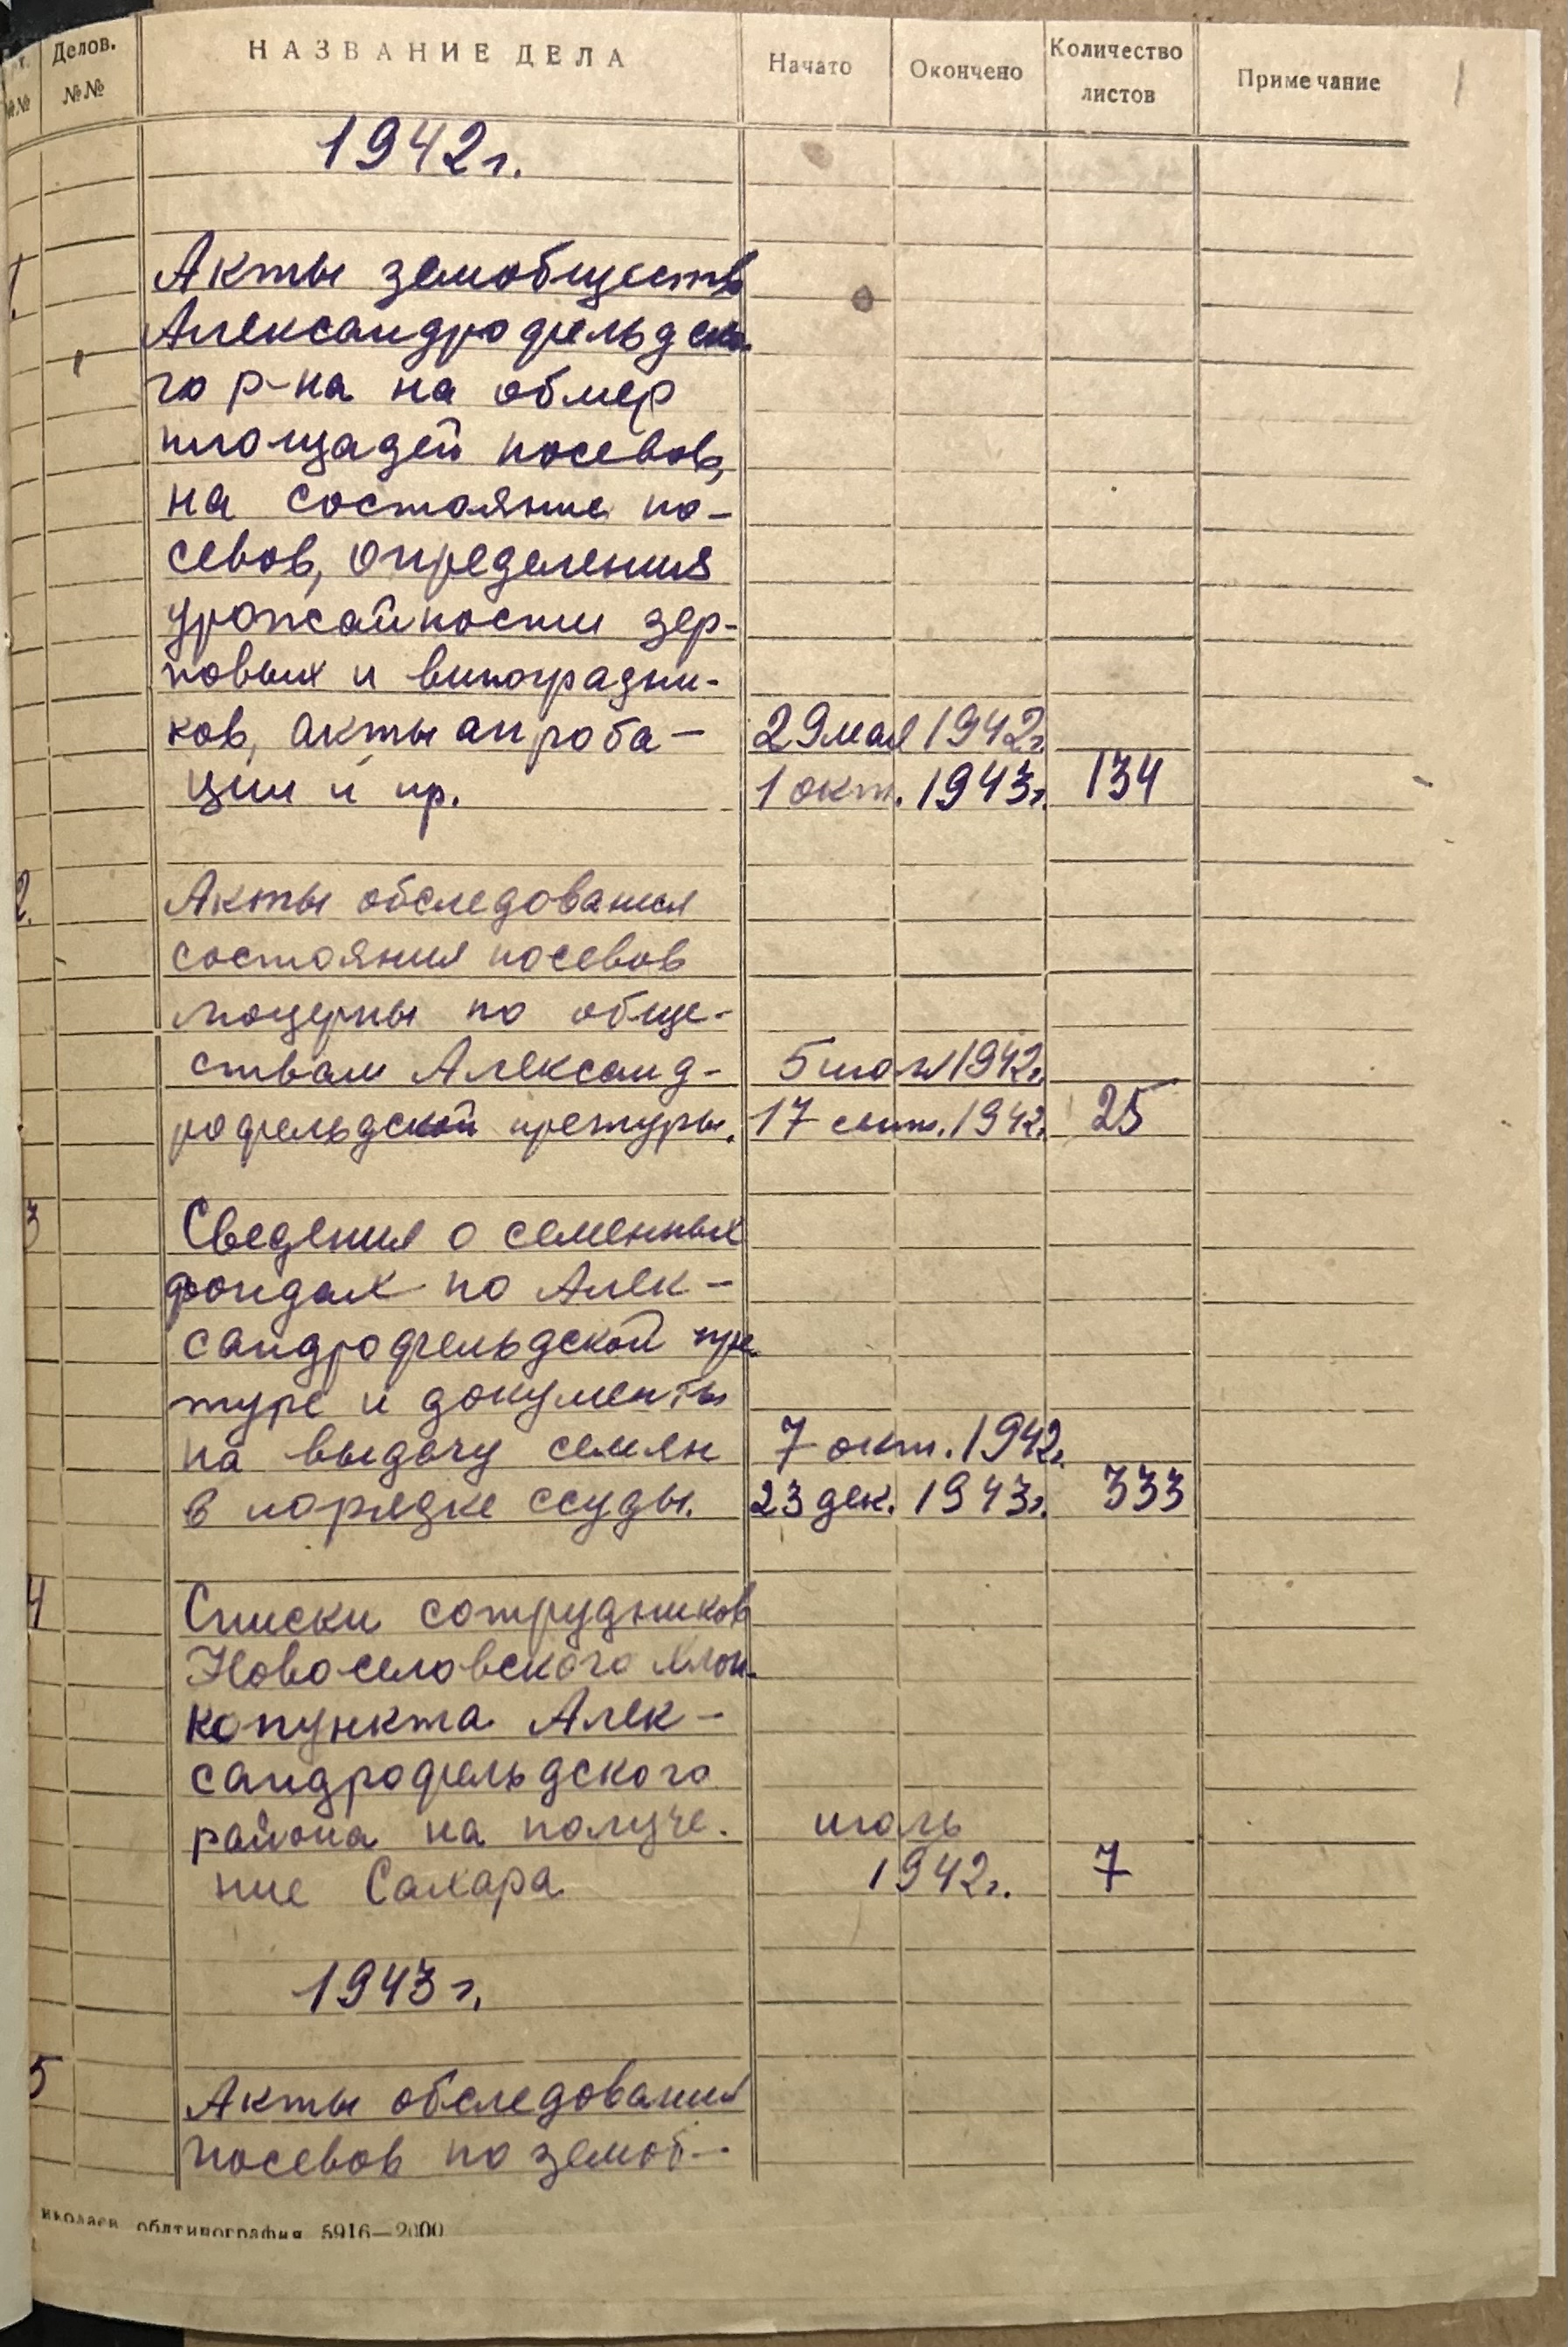 Делов. НАЗВАНИЕ ДЕЛА Начато Окончено Количество листов Примечание
№№ №№
1
1942г.
1. Акты земобществ
Александрофельдско-
го р-на на обмер
площадей посевов,
на состояние по-
севов, определения
урожайности зер-
новых и виноградни-
ков, акты апроба- 29 мая 1942г.
ции и пр. 1 окт. 1943г. 134
2. Акты обследования
состояния посевов
люцерны по обще-
ствам Александ- 5 июля 1942г.
рофельдской претуры. 17 сент. 1942г. 25
3 Сведения о семенных
фондах по Алек-
сандрофельдской пре-
туре и документы
на выдачу семян 7 окт. 1942г.
в порядке ссуды. 23 дек. 1943г. 333
4 Списки сотрудников
Новоселовского хлоп-
копункта Алек-
сандрофельдского
района на получе- июль
ние Сахара 1942г. 7
1943г.
5 Акты обследования
посевов по земоб-
иколаев облтипография 5916—2000